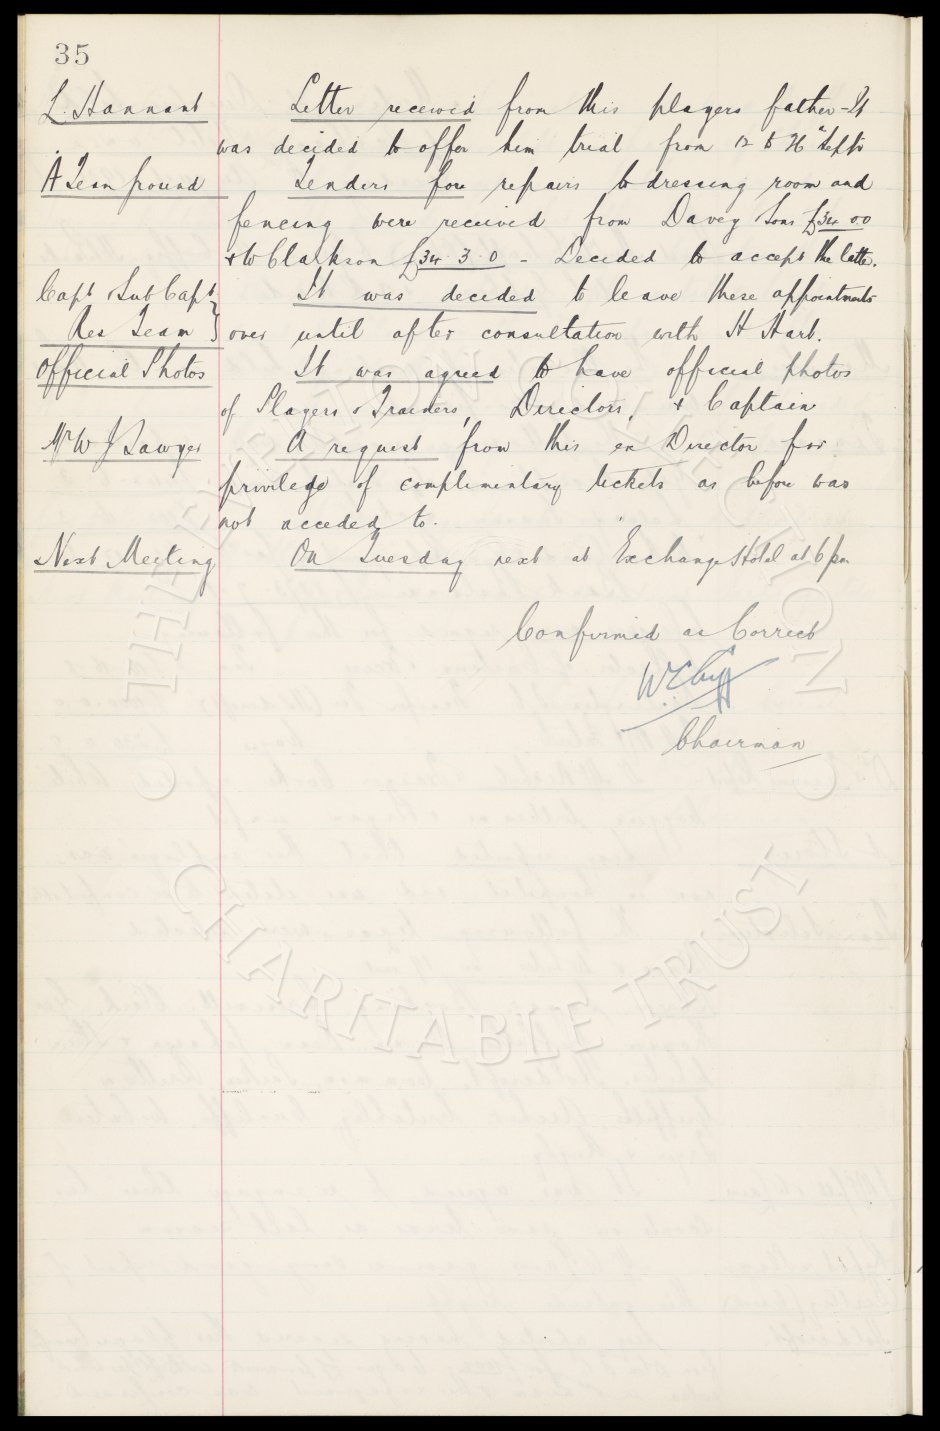 35
L. Hannant Letter received from this players father - It
was decided to offer him trial from 12 to 26th Sept
A Team Ground Tenders for repairs to dressing room and
fencing were received from Davey Sons £34 00
& W Clarkson £34.3.0 - Decided to accept the latter.
Capt & Sub Capt It was decided to leave these appointments
Res Team } over until after consultation with H Hart.
Official Photos It was agreed to have official photos
of Players & Trainers, Directors, & Captain
Mr W J Sawyer A request from this ex Director for
privilege of complimentary tickets as before was
not acceded to.
Next Meeting On Tuesday next at Exchange Hotel at 6 pm
Confirmed as Correct
W.C. Cuff
Chairman
THE EVERTON COLLECTION
CHARITABLE TRUST